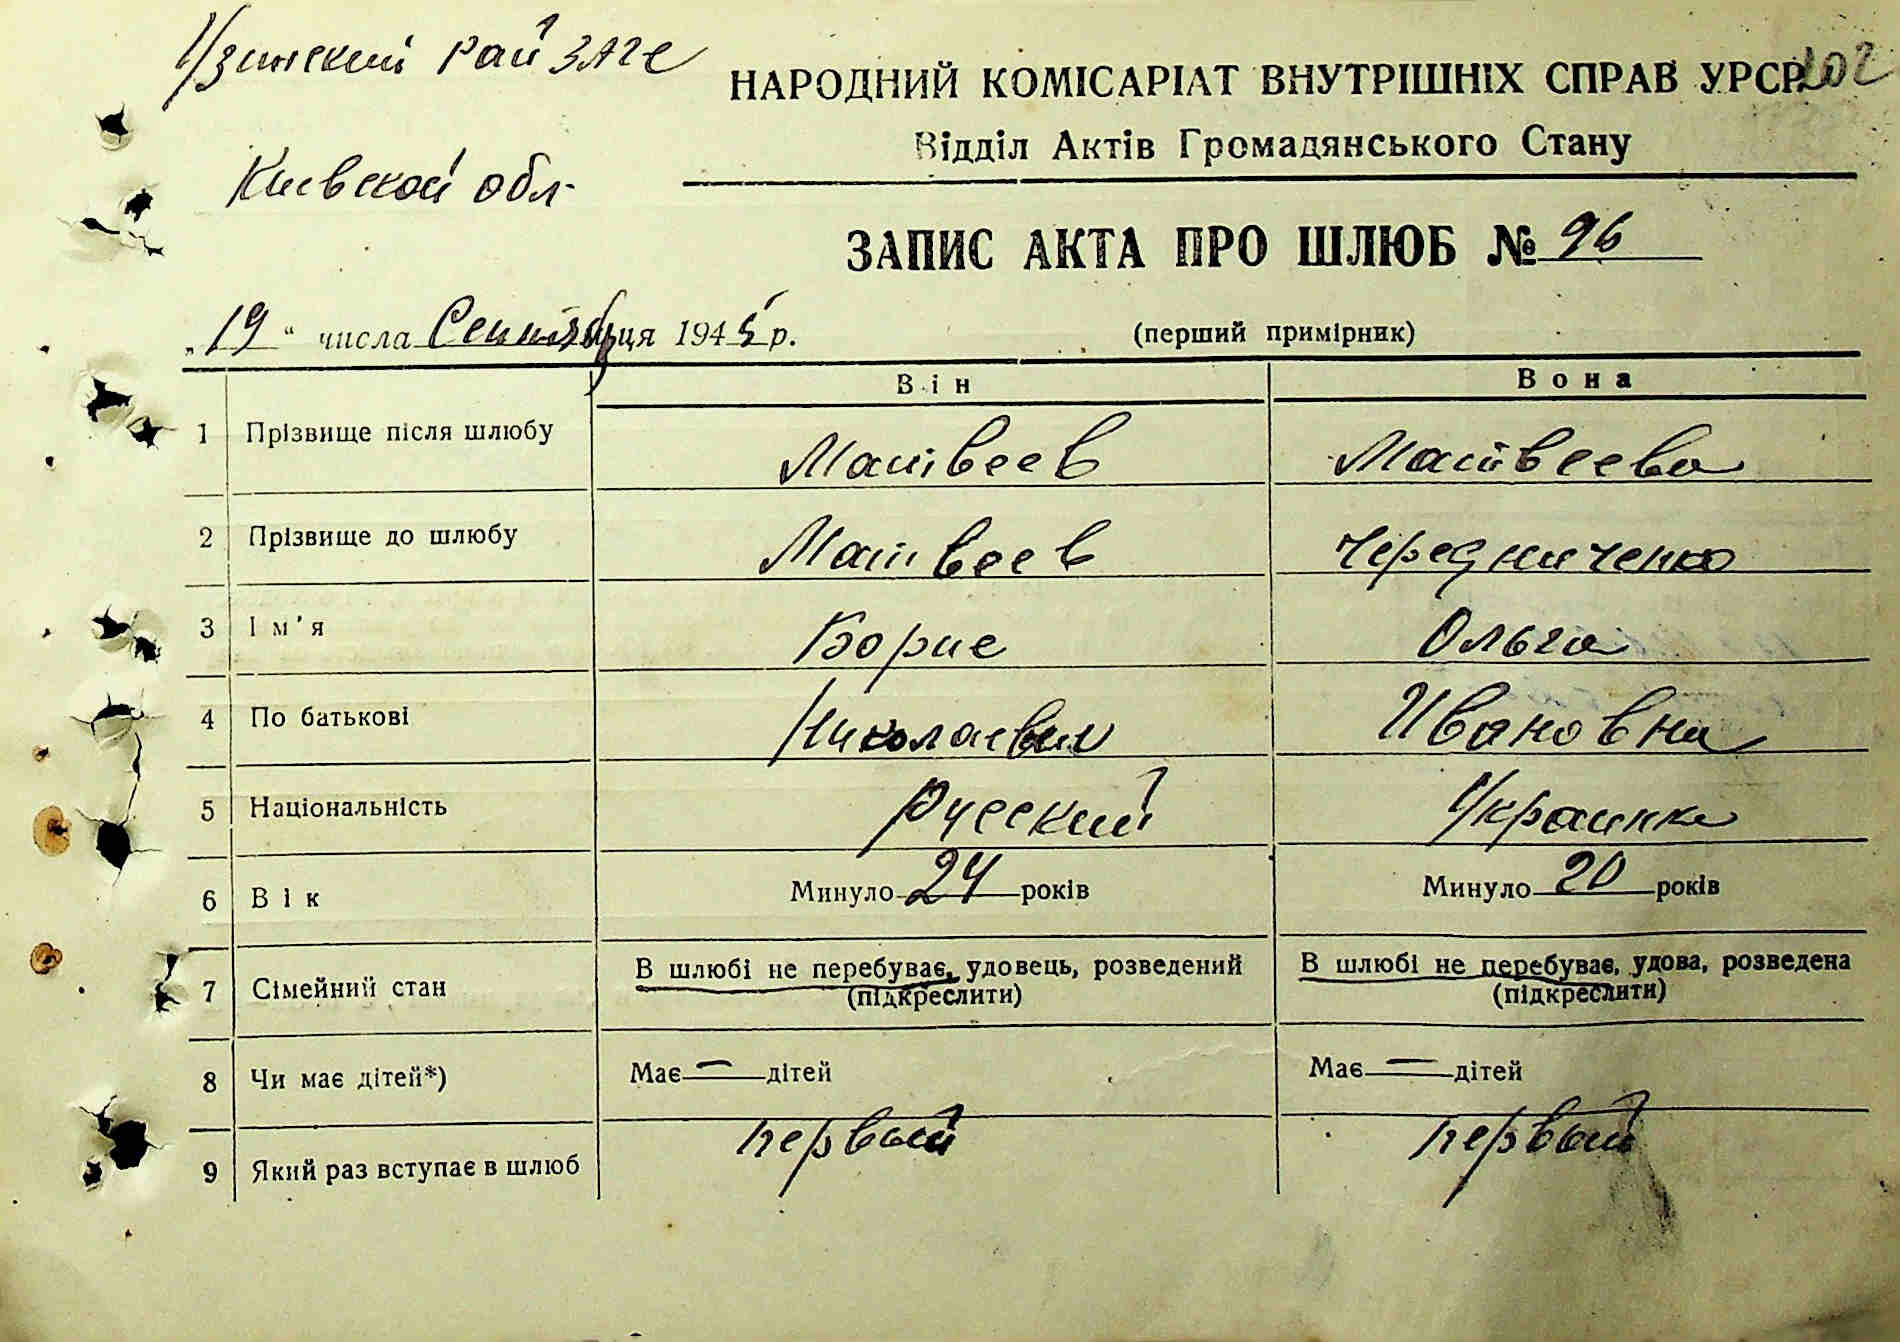 Узинский рай ЗАГС
НАРОДНИЙ КОМІСАРІАТ ВНУТРІШНІХ СПРАВ УРСР
202
Відділ Актів Громадянського Стану
Киевской обл.
ЗАПИС АКТА ПРО ШЛЮБ № 96
„19" числа Сентября місяця 1945 р.
(перший примірник)
Він Вона
1 Прізвище після шлюбу Матвеев Матвеева
2 Прізвище до шлюбу Матвеев Чередниченко
3 Ім'я Борис Ольга
4 По батькові Николаевич Ивановна
5 Національність Русский Украинка
6 Вік Минуло 24 років Минуло 20 років
7 Сімейний стан В шлюбі не перебуває, удовець, розведений В шлюбі не перебуває, удова, розведена
(підкреслити) (підкреслити)
8 Чи має дітей*) Має — дітей Має — дітей
9 Який раз вступає в шлюб первый первый